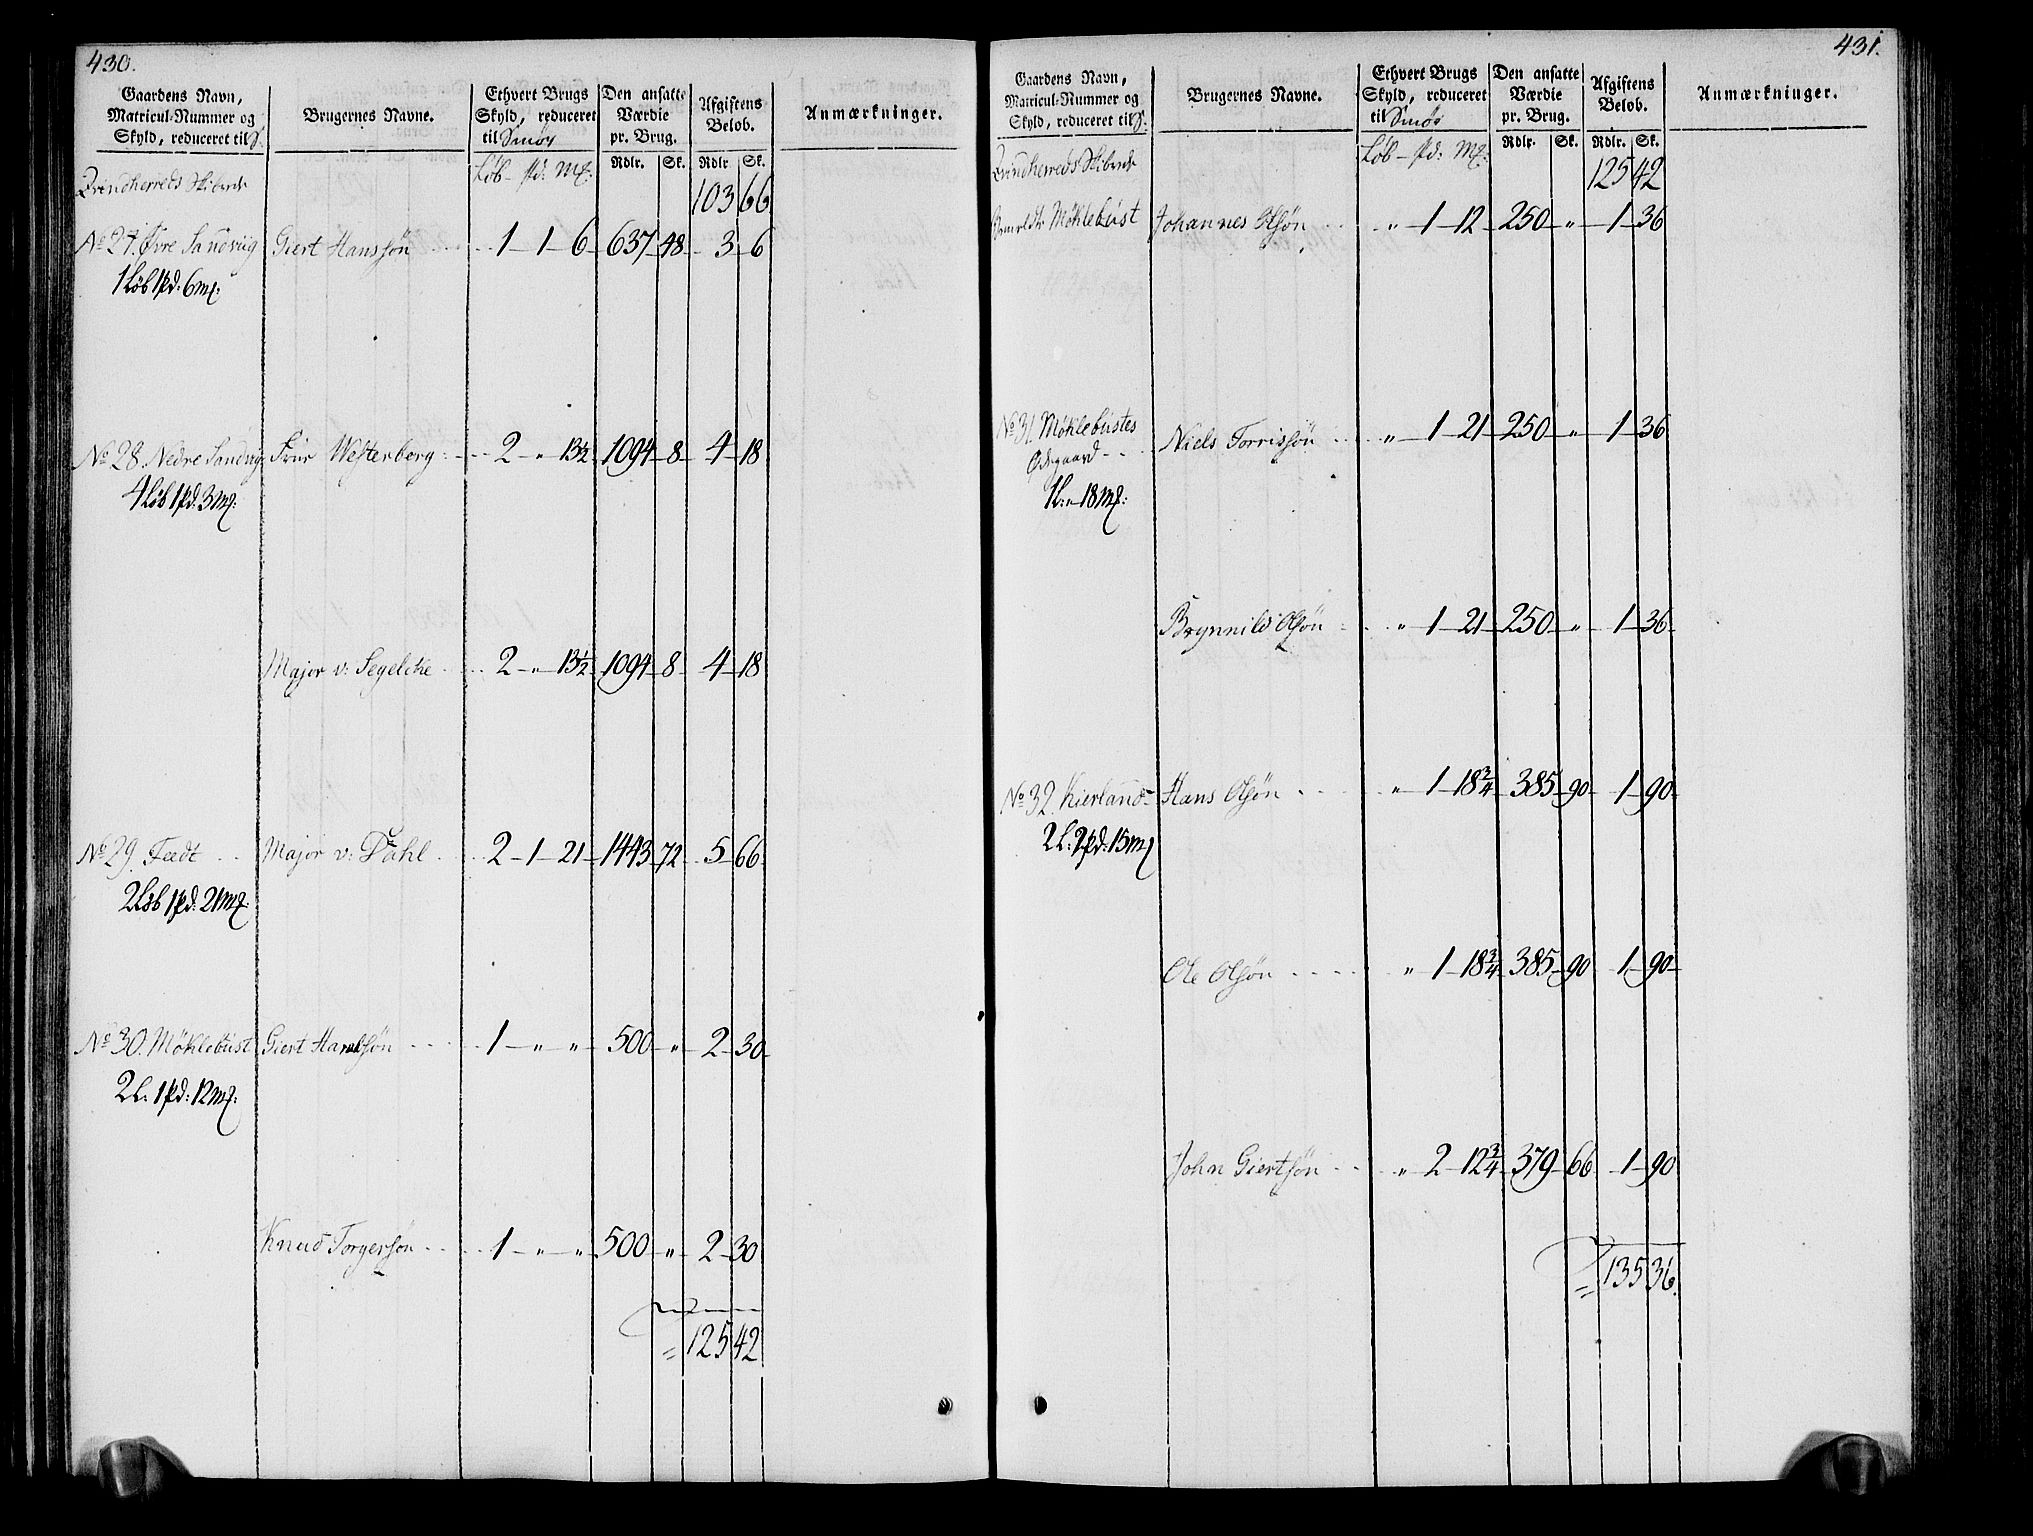 430.
Gaardens Navn, Matricul-Nummer og Skyld, reduceret til S. | Brugernes Navne. | Ethvert Brugs Skyld, reduceret til Smør | Den ansatte Værdie pr. Brug. | Afgiftens Beløb. | Anmærkninger.
Løb – Pd: Mk: | Rdlr. | Sk. | Rdlr. | Sk.
Qvindherreds Skibrede 103 66
No 27. Øvre Sandviig Giert Hanssøn 1 – 1 – 6 – 637 – 48 – 3 – 6
1 Løb 1 Pd: 6 Mk:
No 28. Nedre Sandvig Frue Westerberg 2 – „ 13½ 1094 – 8 – 4 – 18
4 Løb 1 Pd: 3 Mk:
Major v: Segelcke 2 – „ – 13½ 1094 – 8 – 4 – 18
No 29. Fædt Major v: Dahl 2 – 1 – 21 – 1443 – 72 – 5 – 66
2 Løb 1 Pd: 21 Mk:
No 30. Møklebust Giert Haraldsøn 1 – „ – „ – 500 – „ – 2 – 30
2 L: 1 Pd: 12 Mk:
Knud Torgersøn 1 – „ – „ 500 – „ 2 – 30
= 125 42
431.
Gaardens Navn, Matricul-Nummer og Skyld, reduceret til S. | Brugernes Navne. | Ethvert Brugs Skyld, reduceret til Smør | Den ansatte Værdie pr. Brug. | Afgiftens Beløb. | Anmærkninger.
Løb – Pd: Mk: | Rdlr. | Sk. | Rdlr. | Sk.
Qvindherreds Skibrede 125 42
Møklebust Johannes Olsøn „ 1 – 12 – 250 – „ – 1 – 36
No 31. Møklebustes Niels Torrissøn „ – 1 – 21 – 250 – „ – 1 – 36
Ødegaard
1 L: „ 18 Mk:
Brynnild Olsøn „ – 1 – 21 – 250 – „ – 1 – 36
No 32. Kierland Hans Olsøn „ 1 – 18¾ 385 – 90 – 1 – 90
2 L: 2 Pd: 15 Mk
Ole Olsøn „ 1 – 18¾ 385 – 90 1 – 90
John Giertsøn „ 2 – 12¾ 379 – 66 – 1 – 90
= 135 36.